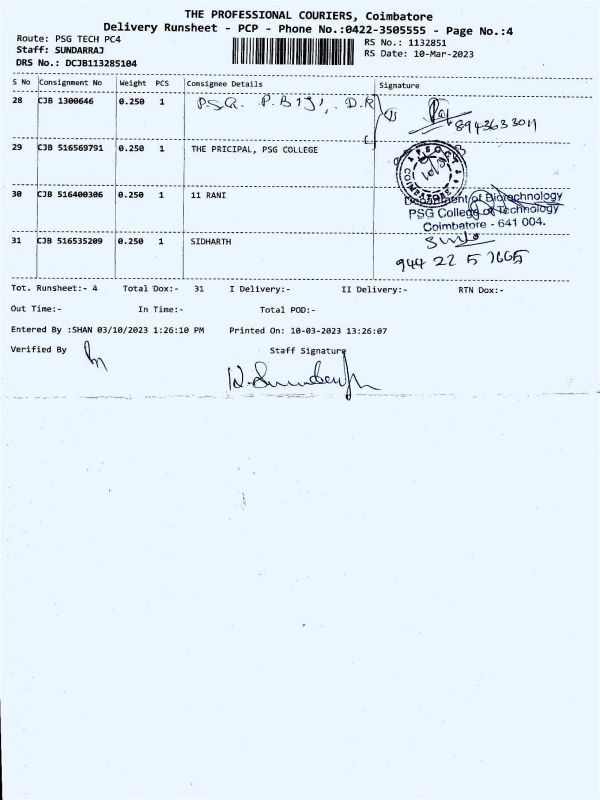 THE PROFESSIONAL COURIERS, Coimbatore
Delivery Runsheet - PCP - Phone No.:0422-3505555 - Page No.:4
Route: PSG TECH PC4
RS No.: 1132851
Staff: SUNDARRAJ
RS Date: 10-Mar-2023
DRS No.: DCJB113285104
S No Consignment No Weight PCS Consignee Details Signature
28 CJB 1300646 0.250 1 PSG. P.BIJI, D.R
8943633011
29 CJB 516569791 0.250 1 THE PRICIPAL, PSG COLLEGE
COIMBATORE
30 CJB 516400306 0.250 1 11 RANI
Department of Biotechnology
PSG College of Technology
Coimbatore - 641 004.
31 CJB 516535209 0.250 1 SIDHARTH
944 22 5 7665
Tot. Runsheet:- 4 Total Dox:- 31 I Delivery:- II Delivery:- RTN Dox:-
Out Time:- In Time:- Total POD:-
Entered By :SHAN 03/10/2023 1:26:10 PM Printed On: 10-03-2023 13:26:07
Verified By Staff Signature